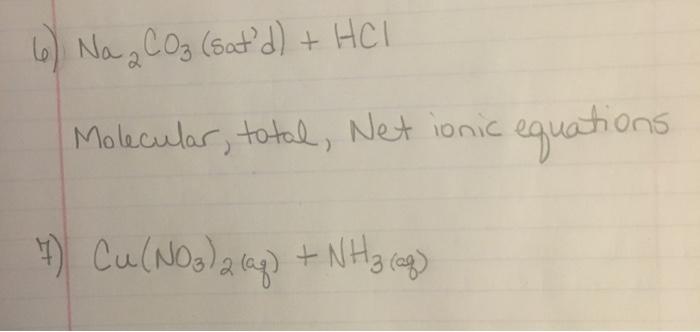 6) Na₂CO₃ (sat'd) + HCl
Molecular, total, Net ionic equations
7) Cu(NO₃)₂ (aq) + NH₃ (aq)